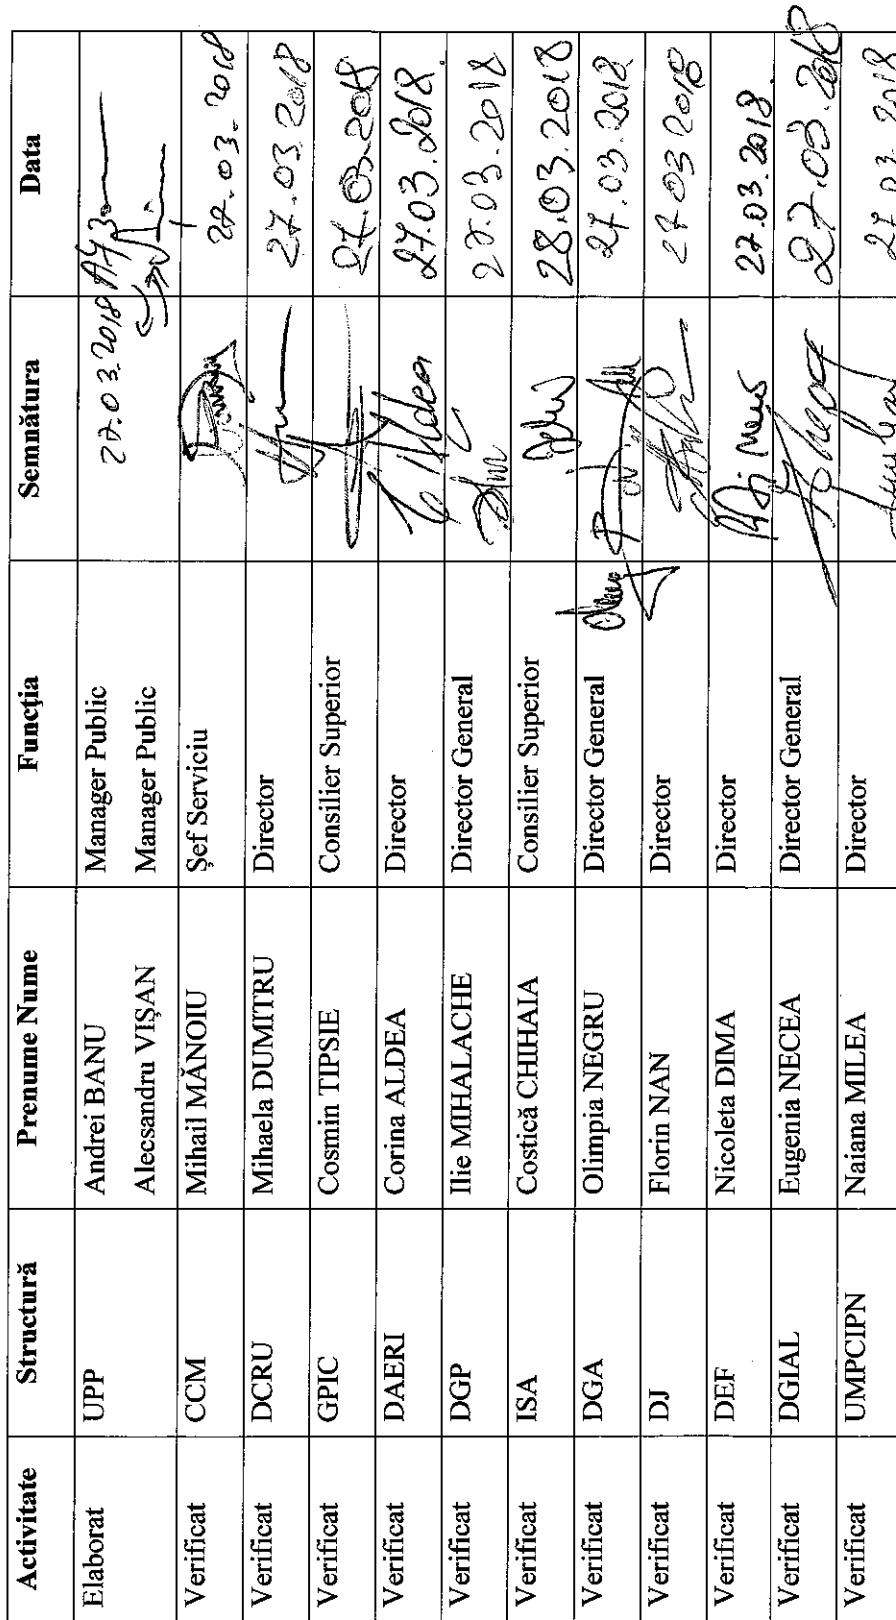 Activitate Structură Prenume Nume Funcţia Semnătura Data
Elaborat UPP Andrei BANU Manager Public 27.03.2018
Alecsandru VIŞAN Manager Public
Verificat CCM Mihail MĂNOIU Şef Serviciu 27.03.2018
Verificat DCRU Mihaela DUMITRU Director 27.03.2018
Verificat GPIC Cosmin TIPSIE Consilier Superior 27.03.2018
Verificat DAERI Corina ALDEA Director 27.03.2018.
Verificat DGP Ilie MIHALACHE Director General 27.03.2018
Verificat ISA Costică CHIHAIA Consilier Superior 28.03.2018
Verificat DGA Olimpia NEGRU Director General 27.03.2018
Verificat DJ Florin NAN Director 27 03 2018
Verificat DEF Nicoleta DIMA Director 27.03.2018.
Verificat DGIAL Eugenia NECEA Director General 27.03.2018
Verificat UMPCIPN Naiana MILEA Director 27.03.2018